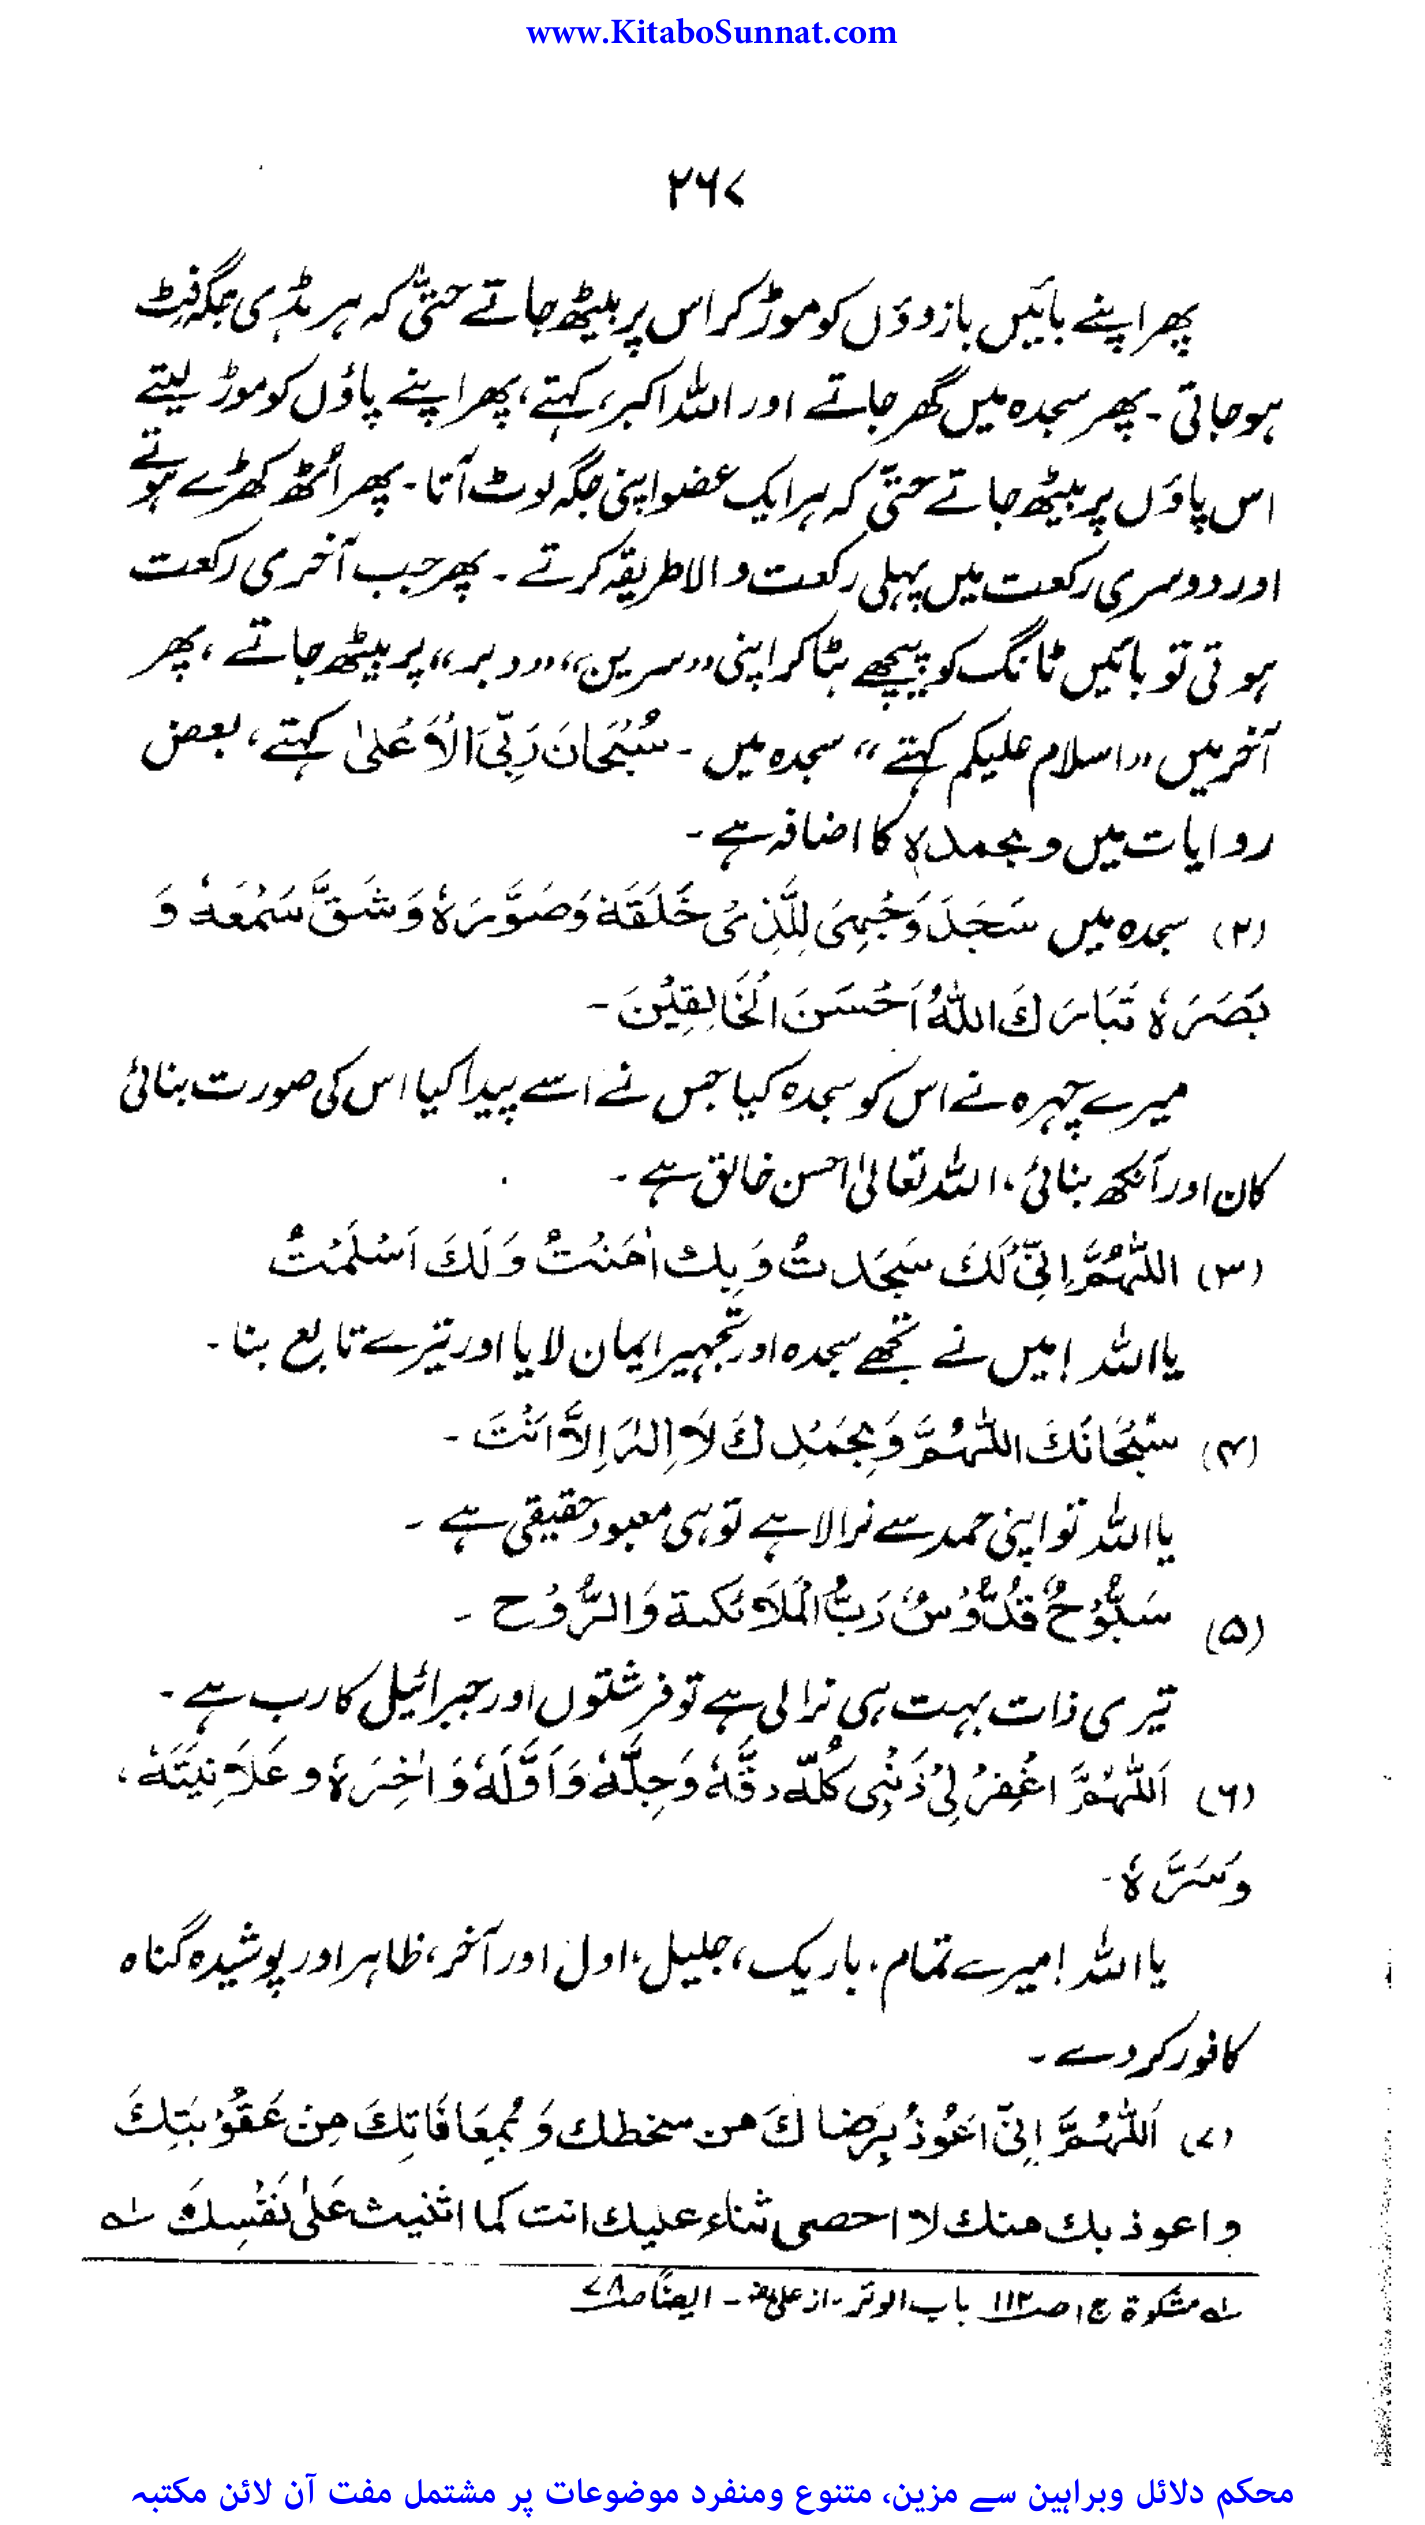 www.KitaboSunnat.com
۲۶۷
پھر اپنے بائیں بازوؤں کو موڑ کر اس پر بیٹھ جاتے حتیّٰ کہ ہر ہڈی جگہ فِٹ
ہو جاتی ۔ پھر سجدہ میں گھر جاتے اور اللہ اکبر، کہتے، پھر اپنے پاؤں کو موڑ لیتے
اس پاؤں پر بیٹھ جاتے حتیّٰ کہ ہر ایک عضو اپنی جگہ لوٹ آتا ۔ پھر اُٹھ کھڑے ہوتے
اور دوسری رکعت میں پہلی رکعت والا طریقہ کرتے ۔ پھر جب آخری رکعت
ہوتی تو بائیں ٹانگ کو پیچھے ہٹا کر اپنی ,,سرین،، ,,دبر،، پر بیٹھ جاتے ، پھر
آخر میں ,,اسلام علیکم کہتے،، سجدہ میں ۔ سُبْحَانَ رَبِّیَ الْاَعْلیٰ کہتے، بعض
روایات میں وبحمدہ کا اضافہ ہے ۔
(۲) سجدہ میں سَجَدَ وَجْہِیَ لِلَّذِیْ خَلَقَہٗ وَصَوَّرَہٗ وَشَقَّ سَمْعَہٗ وَ
بَصَرَہٗ تَبَارَكَ اللّٰہُ اَحْسَنَ الْخَالِقِیْنَ ۔
میرے چہرہ نے اس کو سجدہ کیا جس نے اسے پیدا کیا اس کی صورت بنائی
کان اور آنکھ بنائی ، اللہ تعالیٰ احسن خالق ہے ۔
(۳) اللّٰہُمَّ اِنِّیْ لَكَ سَجَدتُ وَبِكَ اٰمَنْتُ وَلَكَ اَسْلَمْتُ
یا اللہ ! میں نے تجھے سجدہ اور تجہپر ایمان لایا اور تیرے تابع بنا ۔
(۴) سُبْحَانَكَ اللّٰہُمَّ وَبِحَمْدِكَ لَا اِلٰہَ اِلَّا اَنْتَ ۔
یا اللہ تو اپنی حمد سے نرالا ہے تو ہی معبود حقیقی ہے ۔
(۵) سَبُّوْحٌ قُدُّوْسٌ رَبُّ الْمَلَائکۃ وَالرُّوْح ۔
تیری ذات بہت ہی نرالی ہے تو فرشتوں اور جبرائیل کا رب ہے ۔
(۶) اَللّٰہُمَّ اغْفِرْ لِیْ ذَنْبِی کُلَّہٗ دِقَّہٗ وَجِلَّہٗ وَاَوَّلَہٗ وَاٰخِرَہٗ وعَلَانِیَتَہٗ ،
وَسِرَّہٗ ۔
یا اللہ ! میرے تمام ، باریک ، جلیل ، اول اور آخر ، ظاہر اور پوشیدہ گناہ
کافور کر دے ۔
(۷) اَللّٰہُمَّ اِنِّیْ اَعُوْذُ بِرَضَاكَ من سخطك وَبِمُعَافَاتِكَ مِنْ عَقُوْبَتِكَ
واعوذ بك منك لا احصی ثناء علیك انت كما اثنیت عَلیٰ نَفْسِكَ لہ
لہ مشکوۃ ج ۱ ص ۱۱۲ باب الوتر ۔ از علیؓ ۔ ایضاً ص ۷۸
محکم دلائل وبراہین سے مزین، متنوع ومنفرد موضوعات پر مشتمل مفت آن لائن مکتبہ